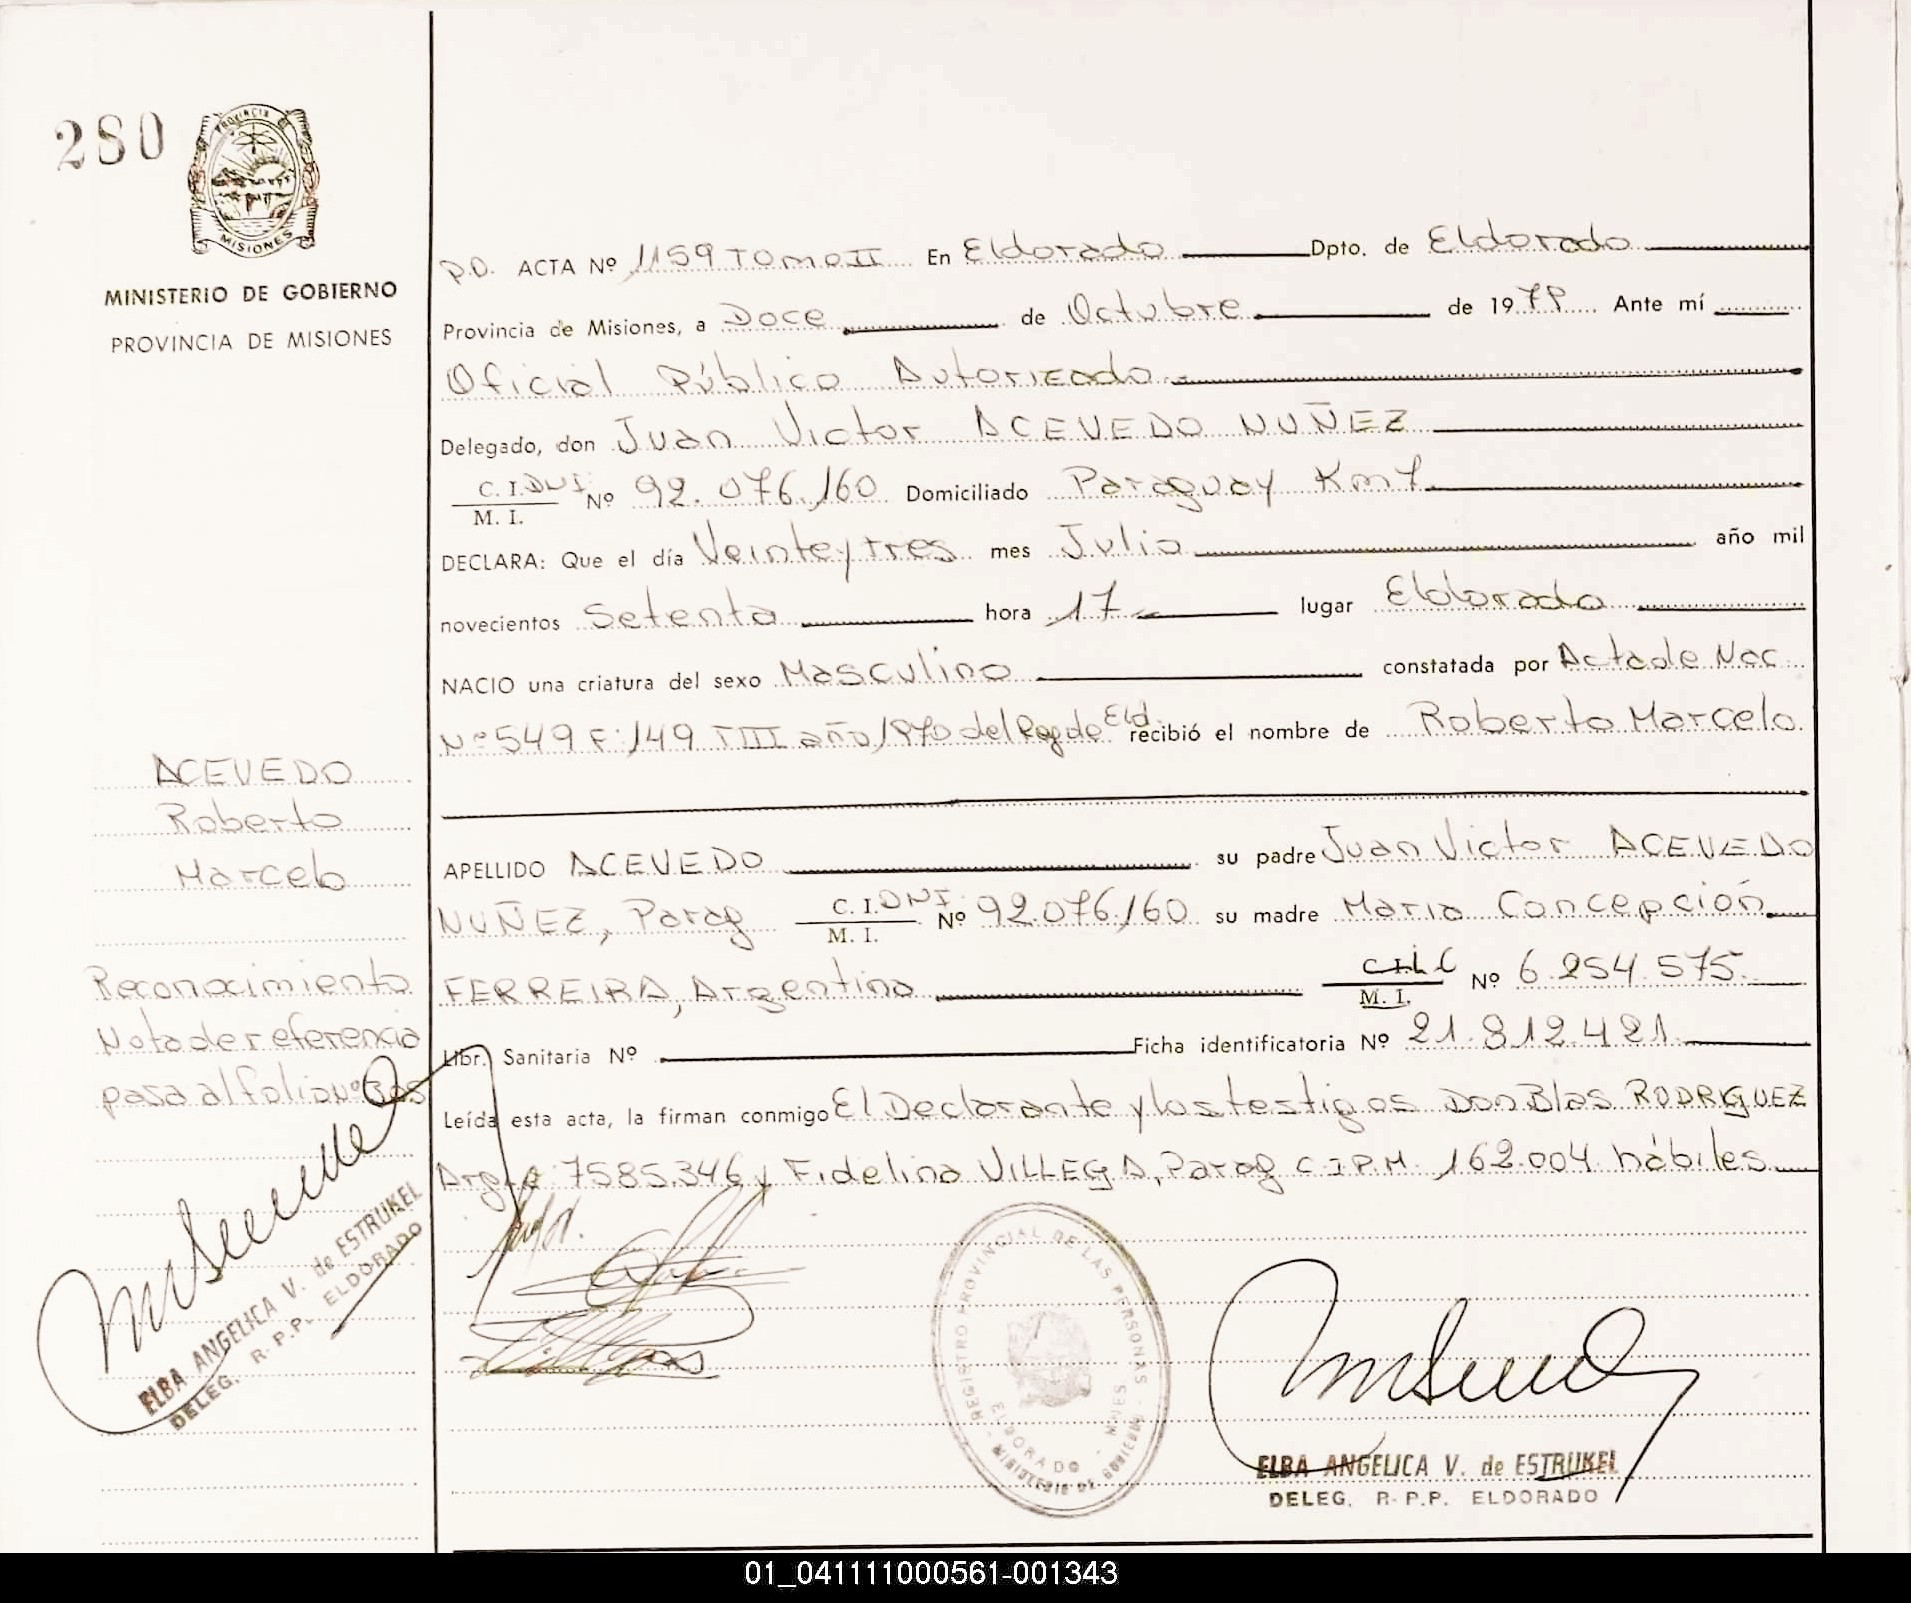 280
PROVINCIA DE
MISIONES
MINISTERIO DE GOBIERNO
PROVINCIA DE MISIONES
P.D. ACTA Nº 1159 Tomo II En Eldorado Dpto. de Eldorado
Provincia de Misiones, a Doce de Octubre de 1979 Ante mí
Oficial Público Autorizado
Delegado, don Juan Victor ACEVEDO NUÑEZ
C. I. DNI Nº 92.076.160 Domiciliado Paraguay Km 7
M. I.
DECLARA: Que el día Veinteytres mes Julio año mil
novecientos Setenta hora 17 lugar Eldorado
NACIO una criatura del sexo Masculino constatada por Acta de Nac
Nº 549 F: 149 TIII año 1970 del Reg de Eld. recibió el nombre de Roberto Marcelo
ACEVEDO
Roberto
Marcelo
APELLIDO ACEVEDO su padre Juan Victor ACEVEDO
NUÑEZ, Parag C. I. DNI Nº 92.076.160 su madre Maria Concepción
M. I.
Reconocimiento
Nota de referencia
pasa al folio Nº
FERREIRA, Argentina C.I. L C Nº 6.254.575
M. I.
Libr. Sanitaria Nº Ficha identificatoria Nº 21.812.421
Leída esta acta, la firman conmigo El Declarante y los testigos Don Blas RODRIGUEZ
7585.346 y Fidelina VILLEGA, Parag C.I.P.M. 162.004 hábiles
ELBA ANGELICA V. de ESTRUKEL
DELEG. R.P.P. ELDORADO
REGISTRO PROVINCIAL DE LAS PERSONAS
ELDORADO - MNES
MINISTERIO DE GOBIERNO
ELBA ANGELICA V. de ESTRUKEL
DELEG. R.P.P. ELDORADO
01_041111000561-001343